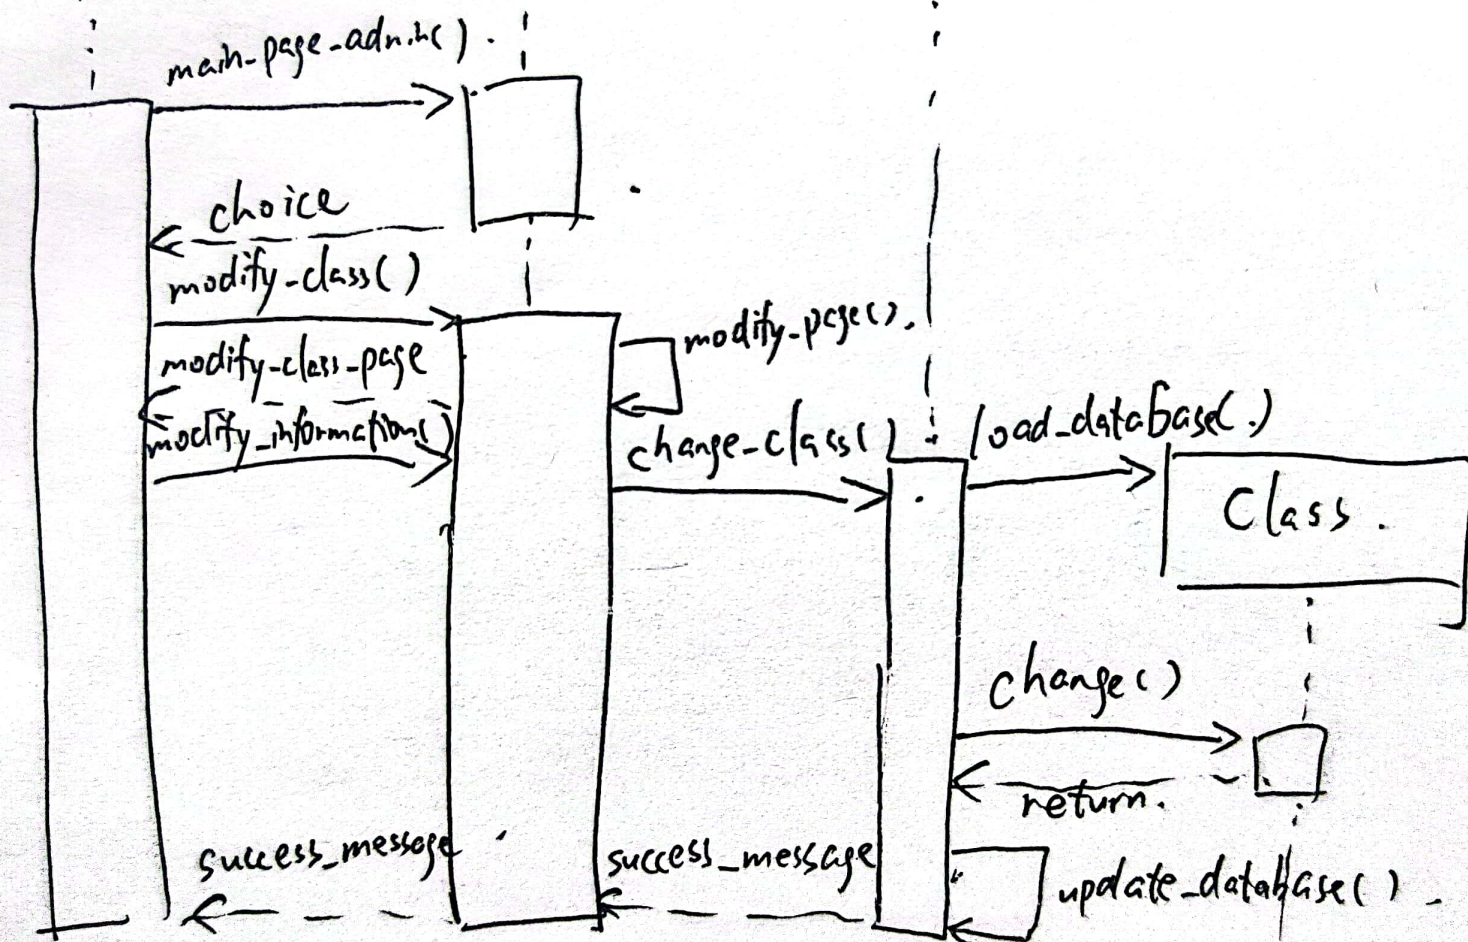 main_page_admin().
choice
modify_class()
modify_page().
modify_class_page
modify_information()
change_class()
load_database(.)
Class.
change()
return.
success_message
success_message
update_database().